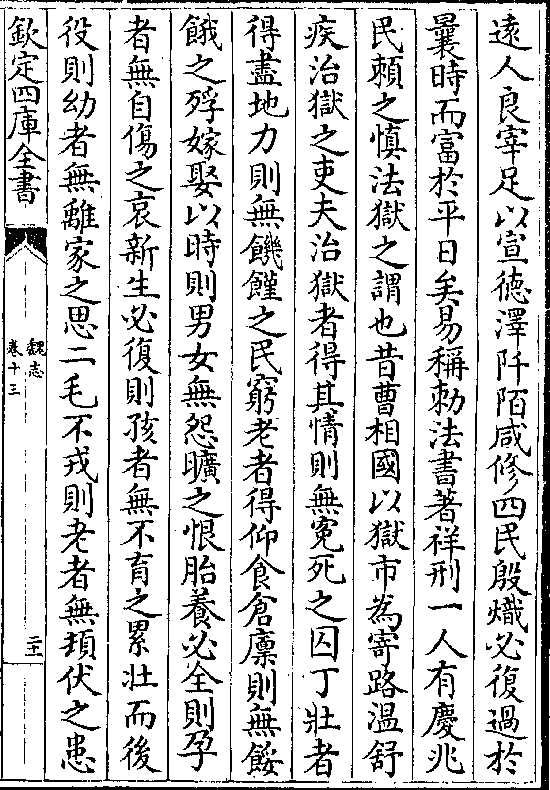 遠人良宰足以宣德澤阡陌咸修四民殷熾必復過於
曩時而富於平日矣易稱勅法書著祥刑一人有慶兆
民賴之慎法獄之謂也昔曹相國以獄市為寄路溫舒
疾治獄之吏夫治獄者得其情則無寃死之囚丁壯者
得盡地力則無饑饉之民窮老者得仰食倉廩則無餒
餓之殍嫁娶以時則男女無怨曠之恨胎養必全則孕
者無自傷之哀新生必復則孩者無不育之累壯而後
役則幼者無離家之思二毛不戎則老者無頓伏之患
欽定四庫全書
魏志
卷十三
二十一